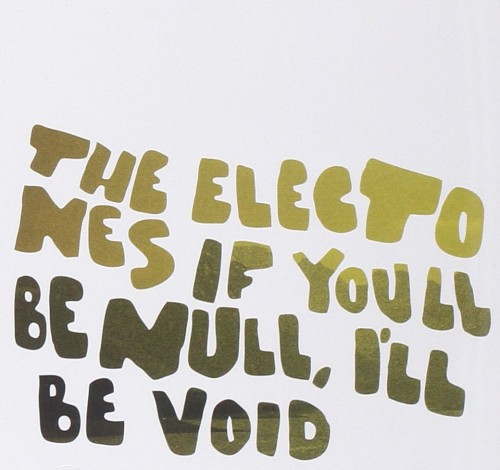 THE ELECTO
NES IF YOULL
BE NULL, I'LL
BE VOID